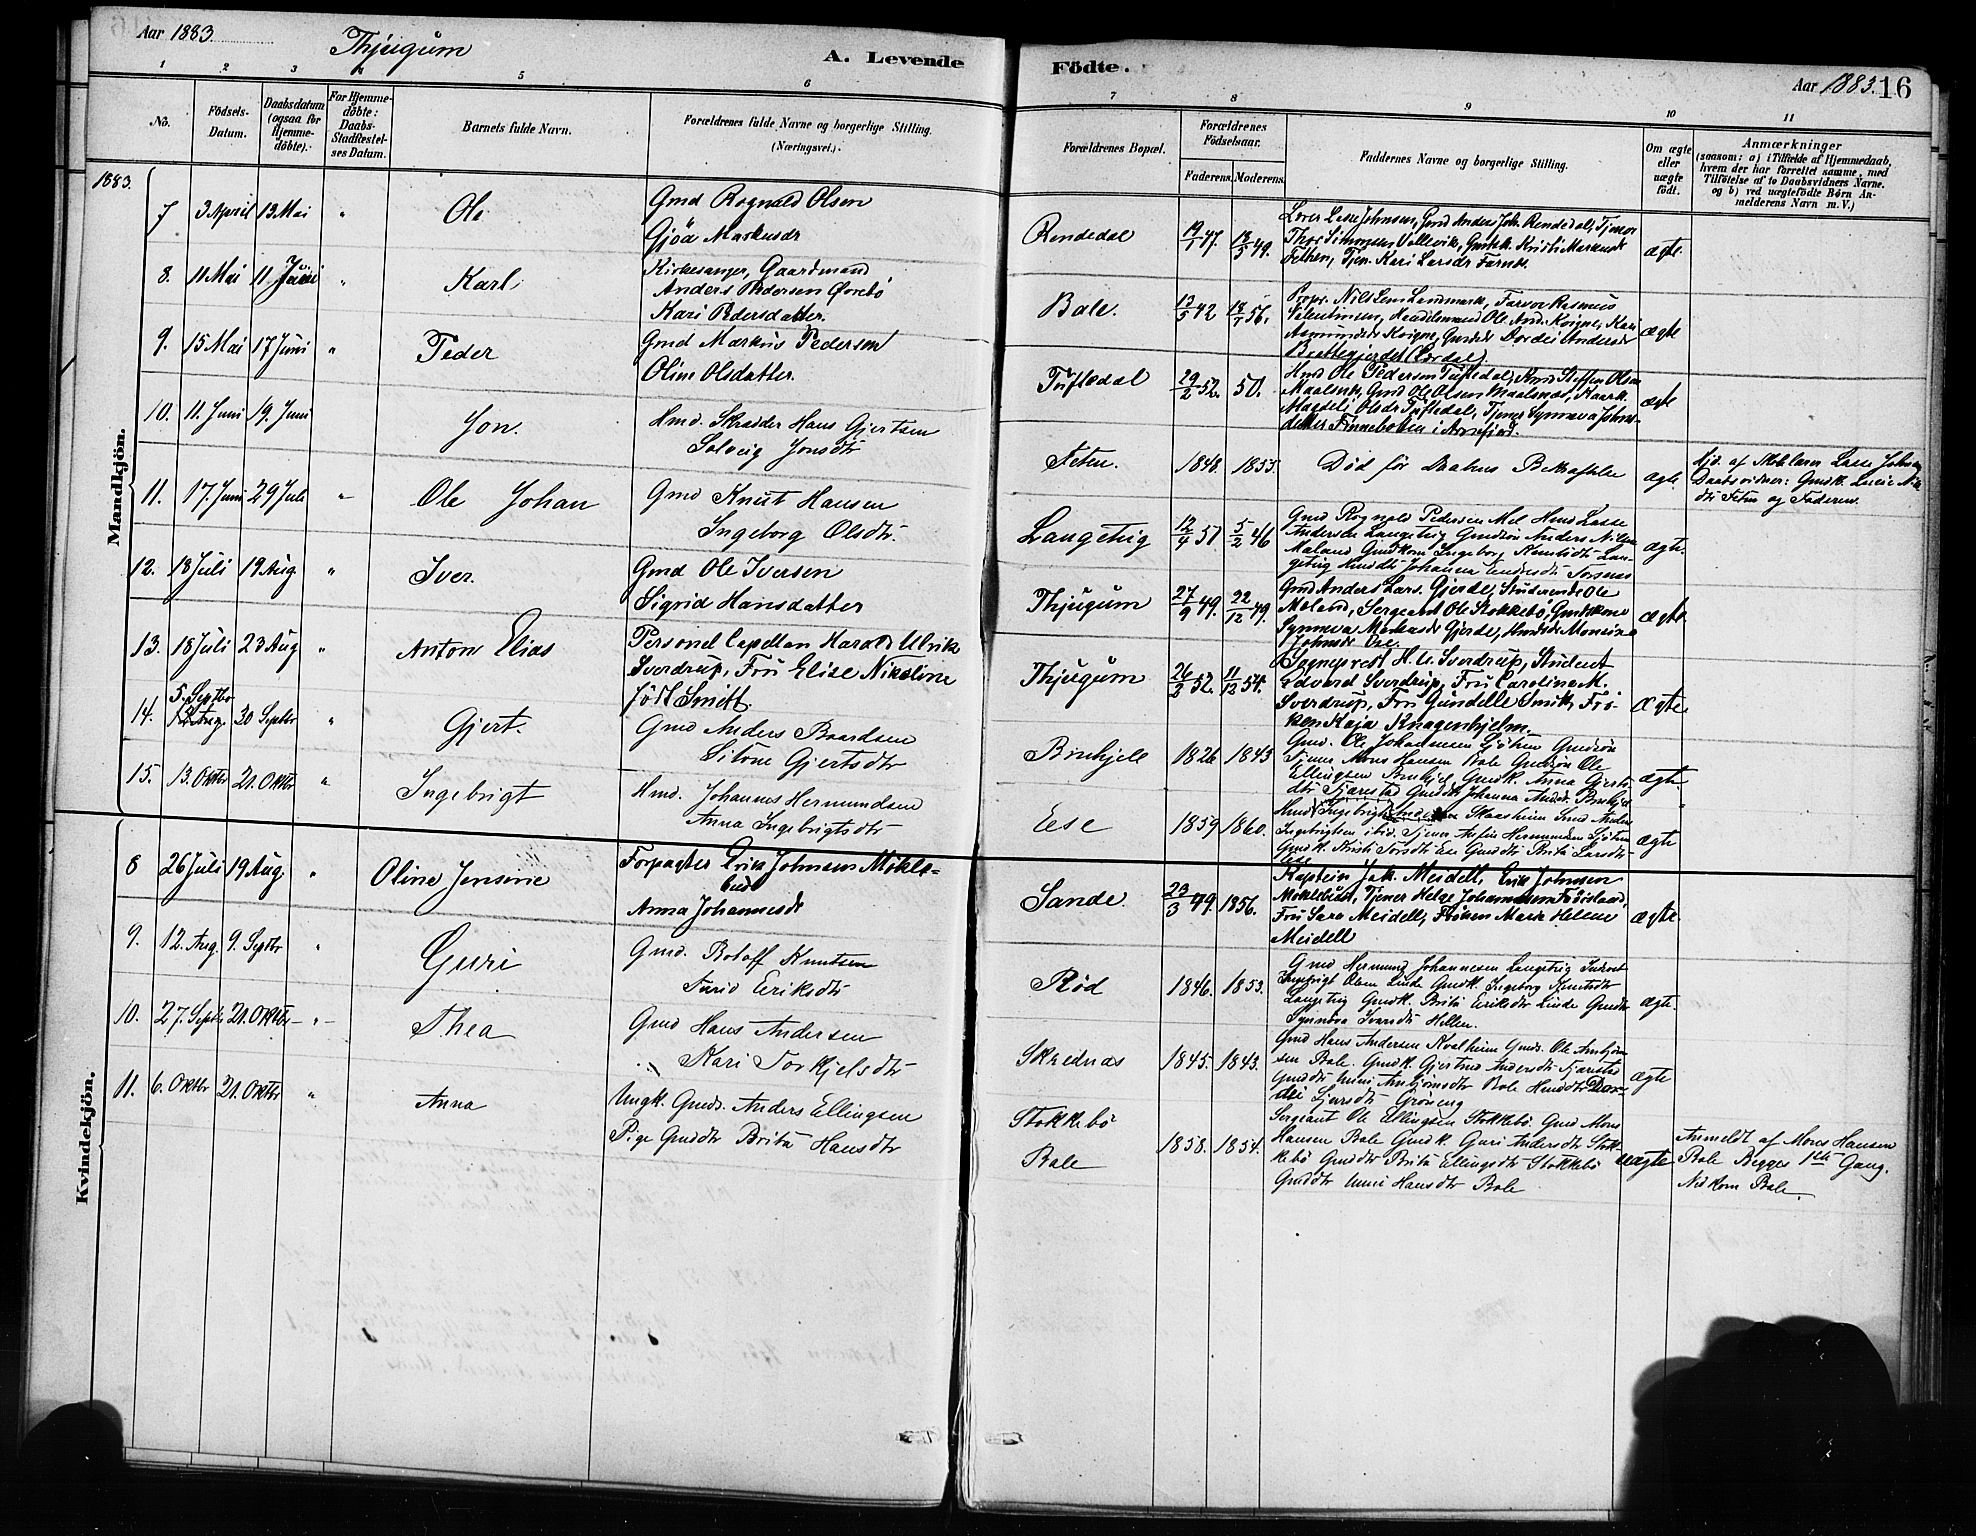 Aar 1883. Thjugum A. Levende Födte. Aar 1883. 16
1 2 3 4 5 6 7 8 9 10 11
No. Födsels-Datum. Daabsdatum (ogsaa for Hjemme-döbte). For Hjemme-döbte: Daabs-Stadfæstel-ses Datum. Barnets fulde Navn. Forældrenes fulde Navne og borgerlige Stilling. (Næringsvei.) Forældrenes Bopæl. Forældrenes Födselsaar. Faderens. Moderens. Faddernes Navne og borgerlige Stilling. Om ægte eller uægte födt. Anmærkninger (saasom: a) i Tilfælde af Hjemmedaab, hvem der har forrettet samme, med Tilföielse af to Daabsvidners Navne. og b) ved uægtefödte Börn An-melderens Navn m. V.)
1883.
Mandkjön.
7 3 April 13 Mai " Ole
Gmd Rognald Olsen
Gjöa Markusdr
Rendedal 19/1 47. 18/5 49.
Lærer Lasse Johnsen, Gmd Anders Joh. Rendedal, Tjener
Thor Simonsen Vallevik, Gmdk. Kristi Markusdr
Fethen, Tjen. Kari Larsdr Farnes.
ægte.
8. 11 Mai 11 Juni " Karl
Kirkesanger, Gaardmand
Anders Pedersen Övrebö
Kari Pedersdatter.
Bale. 13/5 42 14/7 56.
Propr. Nils Lem Landmark, Farver Rasmus
Valentinsen, Handelsmand Ole And. Kvigne, Kari
Asmundsdr Kvigne, Gmdsdr Dordei Andersdr
Brattegjerdet (Lærdal).
ægte
9. 15 Mai 17 Juni " Peder
Gmd Markus Pedersen
Oline Olsdatter.
Tuftedal 29/2 52. 50.
Hmd Ole Pedersen Tuftedal, Gmd Steffen Olsen
Maalsnes, Gmd Ole Olsen Maalsnes, Kaark.
Magdeli Olsdr Tuftedal, Tjener Synneva Johns-
datter Finnebotten i Arnefjord.
ægte
10. 11. Juni 19. Juni Jon.
Hmd. Skrædder Hans Gjertsen
Solveig Jonsdtr
Feten. 1848. 1855.
Död før Daabens Bekræftelse
ægte.
Hjd. af Meklæren Lasse Johnsen
Daabsvidner: Gmdk. Lucie Nils
dtr Feten og Faderen.
11. 17. Juni 29 Juli " Ole Johan
Gmd Knut Hansen
Ingeborg Olsdtr.
Langeteig 12/4 51 5/2 46
Gmd Rognald Pedersen Mel Hmd Lasse
Andersen Langeteig Gmdsön Anders Nilsen
Maland Gmdkone Ingeborg Knutsdtr Lan-
geteig Hmddtr Johanna Endresdtr Torsnes
ægte.
12. 18 Juli 19 Aug. " Iver.
Gmd Ole Iversen
Sigrid Hansdatter
Thjugum 27/9 49. 22/12 49.
Gmd Anders Lars. Gjerde, Studerende Ole
Moland, Sergeant Ole Stokkebö, Gmdskone
Synneva Markusdr Gjerde, Hmdsdr Monsine
Johnsdr Ese.
ægte
13. 18 Juli 23 Aug " Anton Elias
Personel Capellan Harald Ulrik
Sverdrup, Fru Elise Nikoline
født Smitt.
Thjugum 26/2 52. 11/12 54.
Sogneprest H. U. Sverdrup, Student
Edvard Sverdrup, Fru Caroline M.
Sverdrup, Fru Gundelle Smitt, Frö-
ken Kaja Knagenhjelm.
Ægte.
14. 5. Septbr 12 Aug. 30 Septbr " Gjert.
Gmd Anders Baardsen
Sitone Gjertsdtr
Brnhjell 1826 1843
Gmd. Ole Johannesen Sjötun Gmdsön
Tjener Mons Hansen Bale Gmdsön Ole
Ellingsen Brnhjel Gmdk. Anna Gjerts-
dtr Tjærestad Gmddtr Johanna Andsdr Brnhjel
ægte.
15. 13. Oktbr 21. Oktbr " Ingebrigt
Hmd. Johannes Hermundsen
Anna Ingebrigtsdtr
Eese 1859 1860.
Hmd Ingebrigt Andersen Skaasheim Gmd Anders
Ingebrigtsen ibid. Tjener Anfin Hermundsen Sjötun
Gmdk. Kristi Torsdtr Ese Gmddtr Brita Larsdtr
Ese
ægte
Kvindekjön.
8 26 Juli 19 Aug. " Oline Jensine
Forpagter Erik Johnsen Mokle-
bust
Anna Johannesdr
Sande 23/3 49. 1856.
Kaptein Jak. Meidell, Erik Johnsen
Moklebust, Tjener Helge Johannesen Födisland,
Fru Sara Meidell, Fröken Marie Helene
Meidell
ægte.
9. 12. Aug. 9. Septbr " Guri
Gmd. Botolf Knutsen
Turid Eriksdtr
Röd 1846. 1853.
Gmd Hermund Johannesen Langeteig Inderst
Ingebrigt Olsen Linde Gmdk. Ingeborg Knutsdtr
Langeteig Gmdk. Brita Eriksdtr Linde Gmdtr
Synnöva Ivarsdtr Hellen.
ægte.
10. 27. Septbr 21. Oktbr — " — Thea
Gmd Hans Andersen
" Kari Torkjelsdtr
Skreidnæs 1845. 1843.
Gmd Hans Andersen Kvalheim Gmds. Ole Anbjörn-
sen Bale. Gmdk. Gjertrud Andersdtr Tjærestad
Gmddtr Unni Anbjörnsdtr Bale Hmddtr Dor-
dei Sjursdtr Gröneng
ægte
11. 6. Oktbr 21. Oktbr " Anna
Ungk. Gmds. Anders Ellingsen
Pige Gmddtr Brita Hansdtr
Stokkebö
Bale 1858. 1854.
Sergeant Ole Ellingsen Stokkebö Gmd Mons
Hansen Bale Gmdk. Guri Andersdtr Stok-
kebö Gmddtr Brita Ellingsdtr Stokkebö
Gmddtr Unni Hansdtr Bale
uægte
Anmeldt af Mons Hansen
Bale Begges 1ste Gang.
Nedkom Bale.